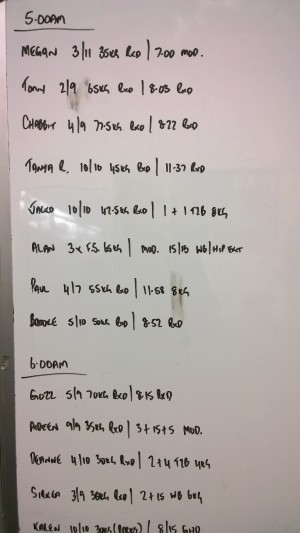 5:00AM
MEGAN 3/11 35KG RXD | 7:00 MOD.
TONY 2/9 65KG RXD | 8:03 RXD
CHABBIT 4/9 77.5KG RXD | 8:22 RXD
TANYA R. 10/10 45KG RXD | 11:37 RXD
10/10 42.5KG RXD | 1 + 1 T2B 8KG
ALAN 3x F.S. 65KG | MOD. 15/15 WB/HIP EXT
PAUL 4/7 55KG RXD | 11:58 8KG
BROOKE 5/10 50KG RXD | 8:52 RXD
6:00AM
GUZZ 5/9 70KG RXD | 8:15 RXD
9/9 35KG RXD | 3+15+5 MOD.
DEANNE 4/10 30KG RXD | 2+4 T2B 4KG
3/9 30KG RXD | 2+15 WB 6KG
KAREN 10/10 30KG / 8/15